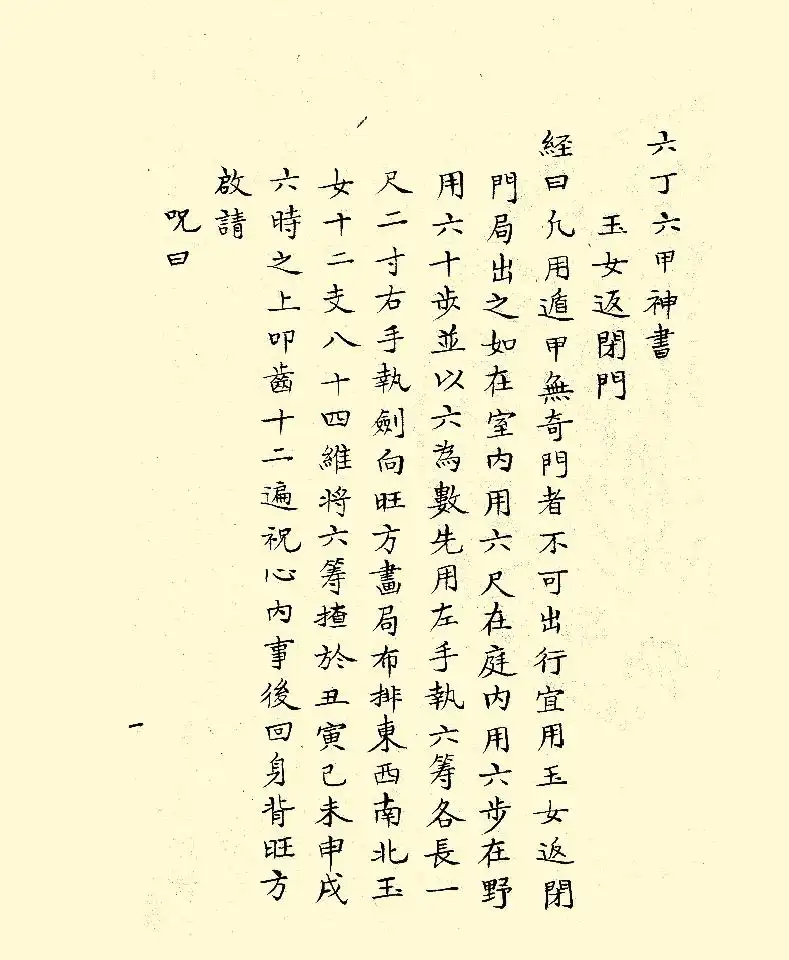 六丁六甲神書
玉女返閉門
経曰凡用遁甲無奇門者不可出行宜用玉女返閉
門局出之如在室内用六尺在庭内用六步在野
用六十步並以六為數先用左手執六筹各長一
尺二寸右手執劍向旺方畫局布排東西南北玉
女十二支八十四維将六筹揸於丑寅己未申戌
六時之上叩齒十二遍祝心内事後回身背旺方
啟請
呪曰
一